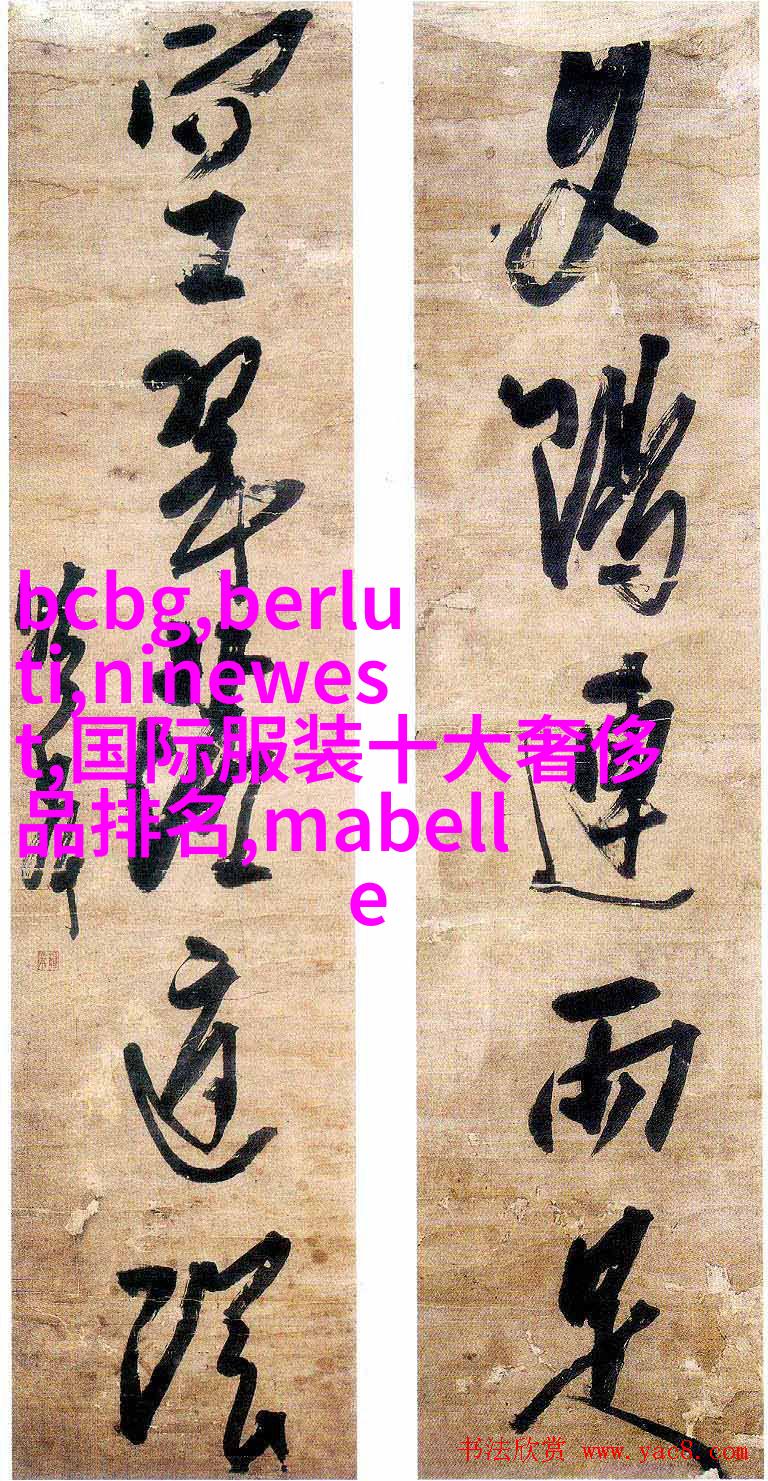 夕陽連雨足
空翠落庭陰
bcbg,berlu
ti,ninewes
t,国际服装十大奢侈
品排名,mabell
e
书法欣赏 www.yac8.com